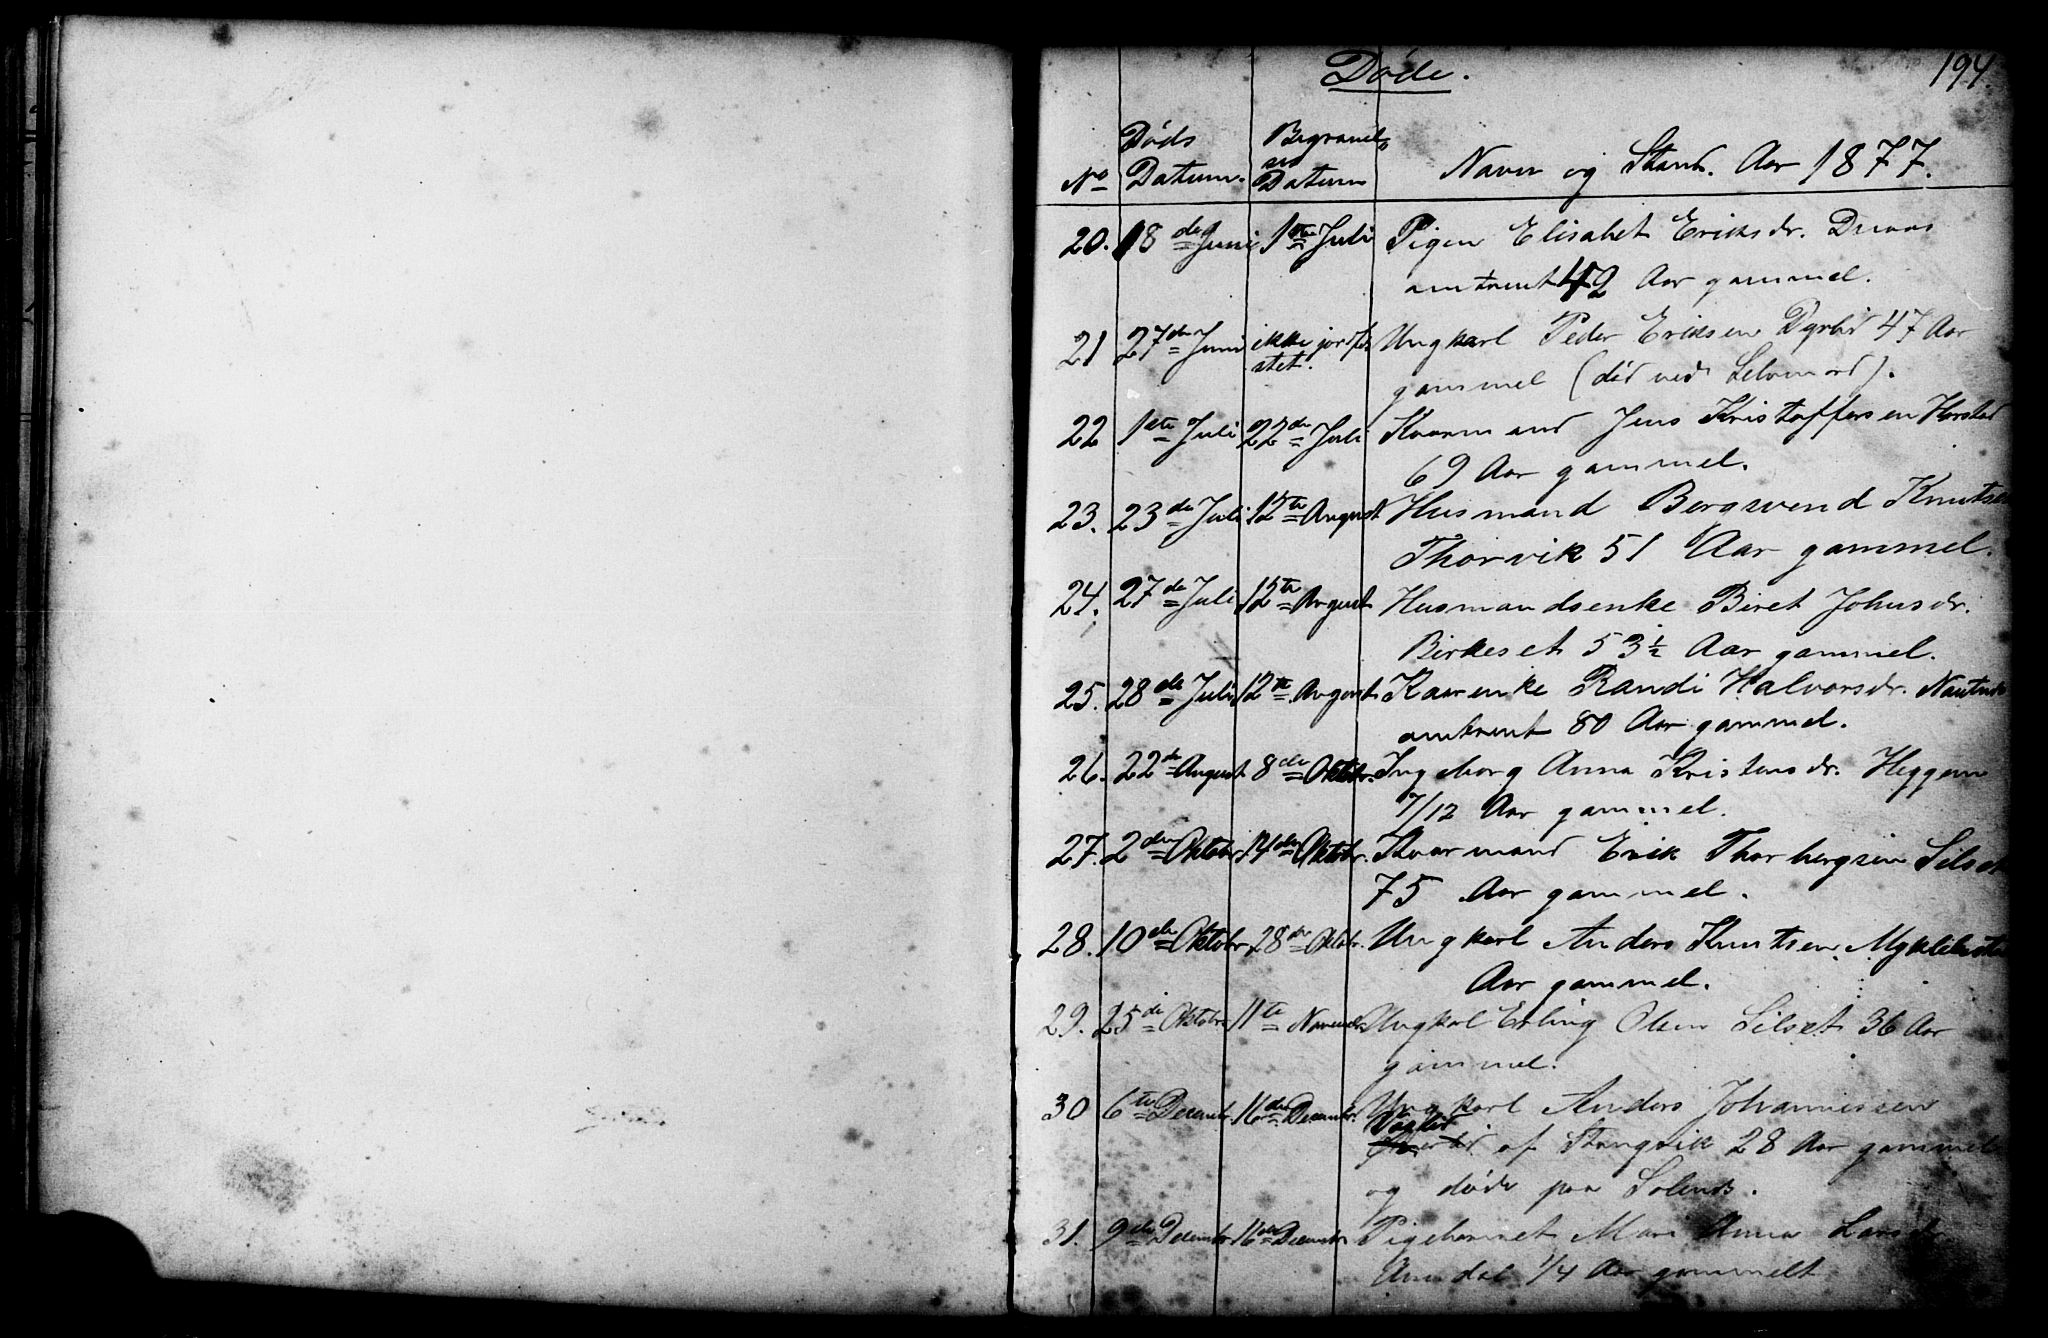 Døde. 194.
No Døds Datum. Begravelses Datum Navn og Stand. Aar 1877.
20. 18de Juni 1ste Juli Pigen Elisabet Eriksdr.
omtrent 42 Aar gammel.
21 27de Juni ikke jordfæstet. Ungkarl Peder Eriksen 47 Aar
gammel (død ved Selvmord).
22 1ste Juli 22de Juli Kaarmand Jens Kristoffersen Harstad
69 Aar gammel.
23. 23de Juli 12te August Husmand Bergsvend Knutsen
Thorvik 51 Aar gammel.
24. 27de Juli 12te August Husmandsenke Beret Johnsdr.
Birkeset 53½ Aar gammel.
25. 28de Juli 12te August Kaarenke Randi Halvorsdr.
omtrent 80 Aar gammel.
26. 22de August 8de Oktobr. Ingeborg Anna Kristensdr. Heggem
7/12 Aar gammel.
27. 2den Oktobr. 14de Oktobr. Kaarmand Erik Thorbergsen Silset
75 Aar gammel.
28. 10de Oktobr. 28de Oktobr. Ungkarl Anders Knutsen Myklebostad
Aar gammel.
29. 25de Oktobr 11te Novembr Ungkal Erling Olsen Silset 36 Aar
gammel.
30 6te Decembr. 16de Decembr. Ungkarl Anders Johannessen
af Stangvik 28 Aar gammel
og døde paa Solends.
31. 9de Decembr 16de Decembr Pigebarnet Mari Anna Larsdtr
1/4 Aar gammelt